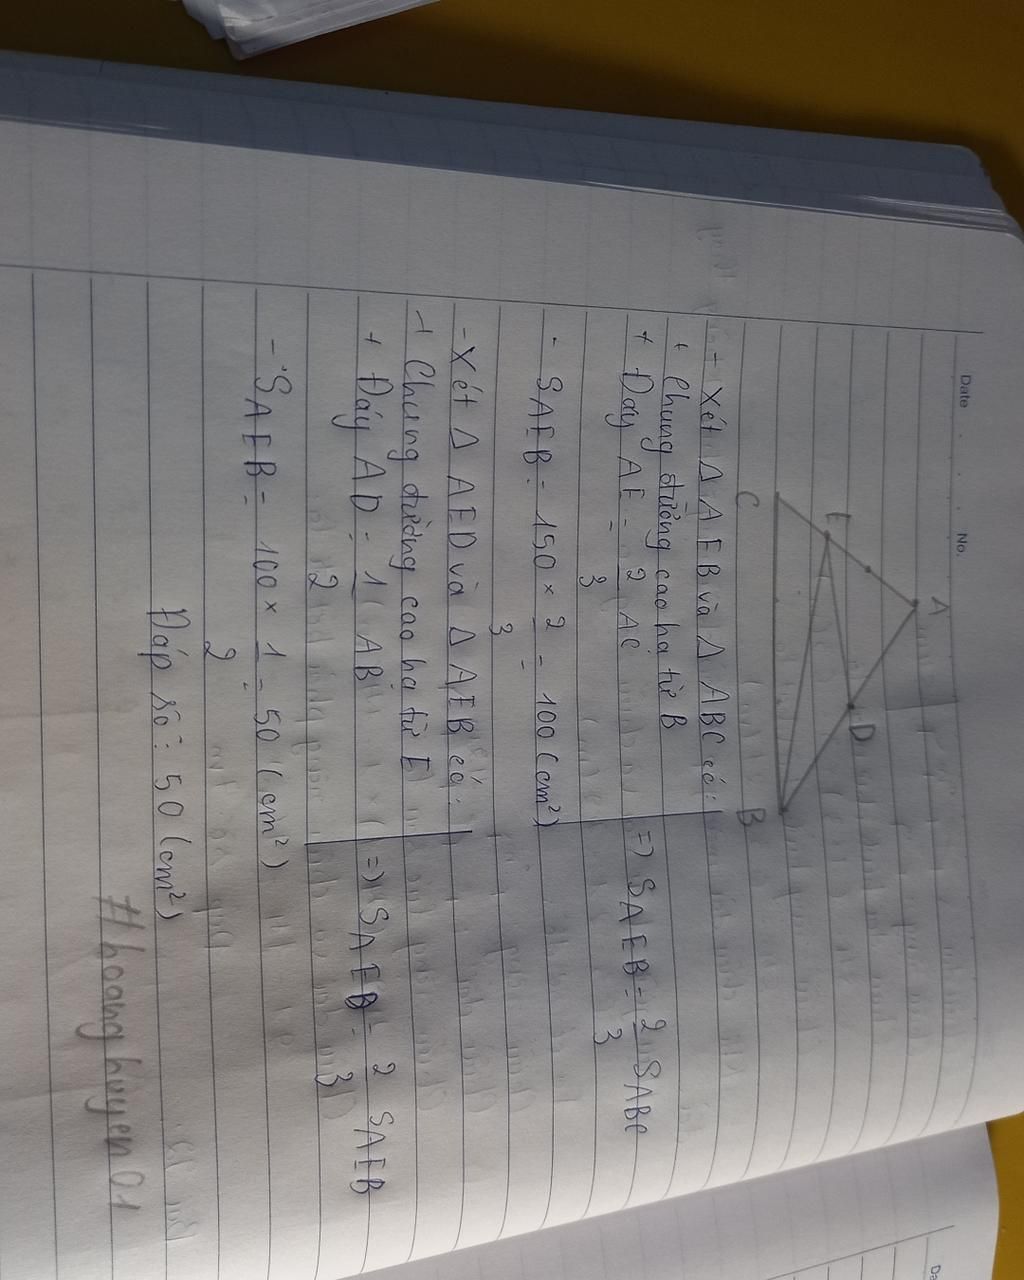 Date . . No.
A
D
E
C B
+ Xét Δ AEB và Δ ABC có:
+ Chung đường cao hạ từ B
+ Đáy AE = 2/3 AC => SAEB = 2/3 SABC
- SAEB = 150 × 2/3 = 100 (cm²)
- Xét Δ AED và Δ AEB có:
+ Chung đường cao hạ từ E
+ Đáy AD = 1/2 AB => SAEB = 2/3 SAEB
- SAEB = 100 × 1/2 = 50 (cm²)
Đáp số: 50 (cm²)
#hoanghuyen01
Da